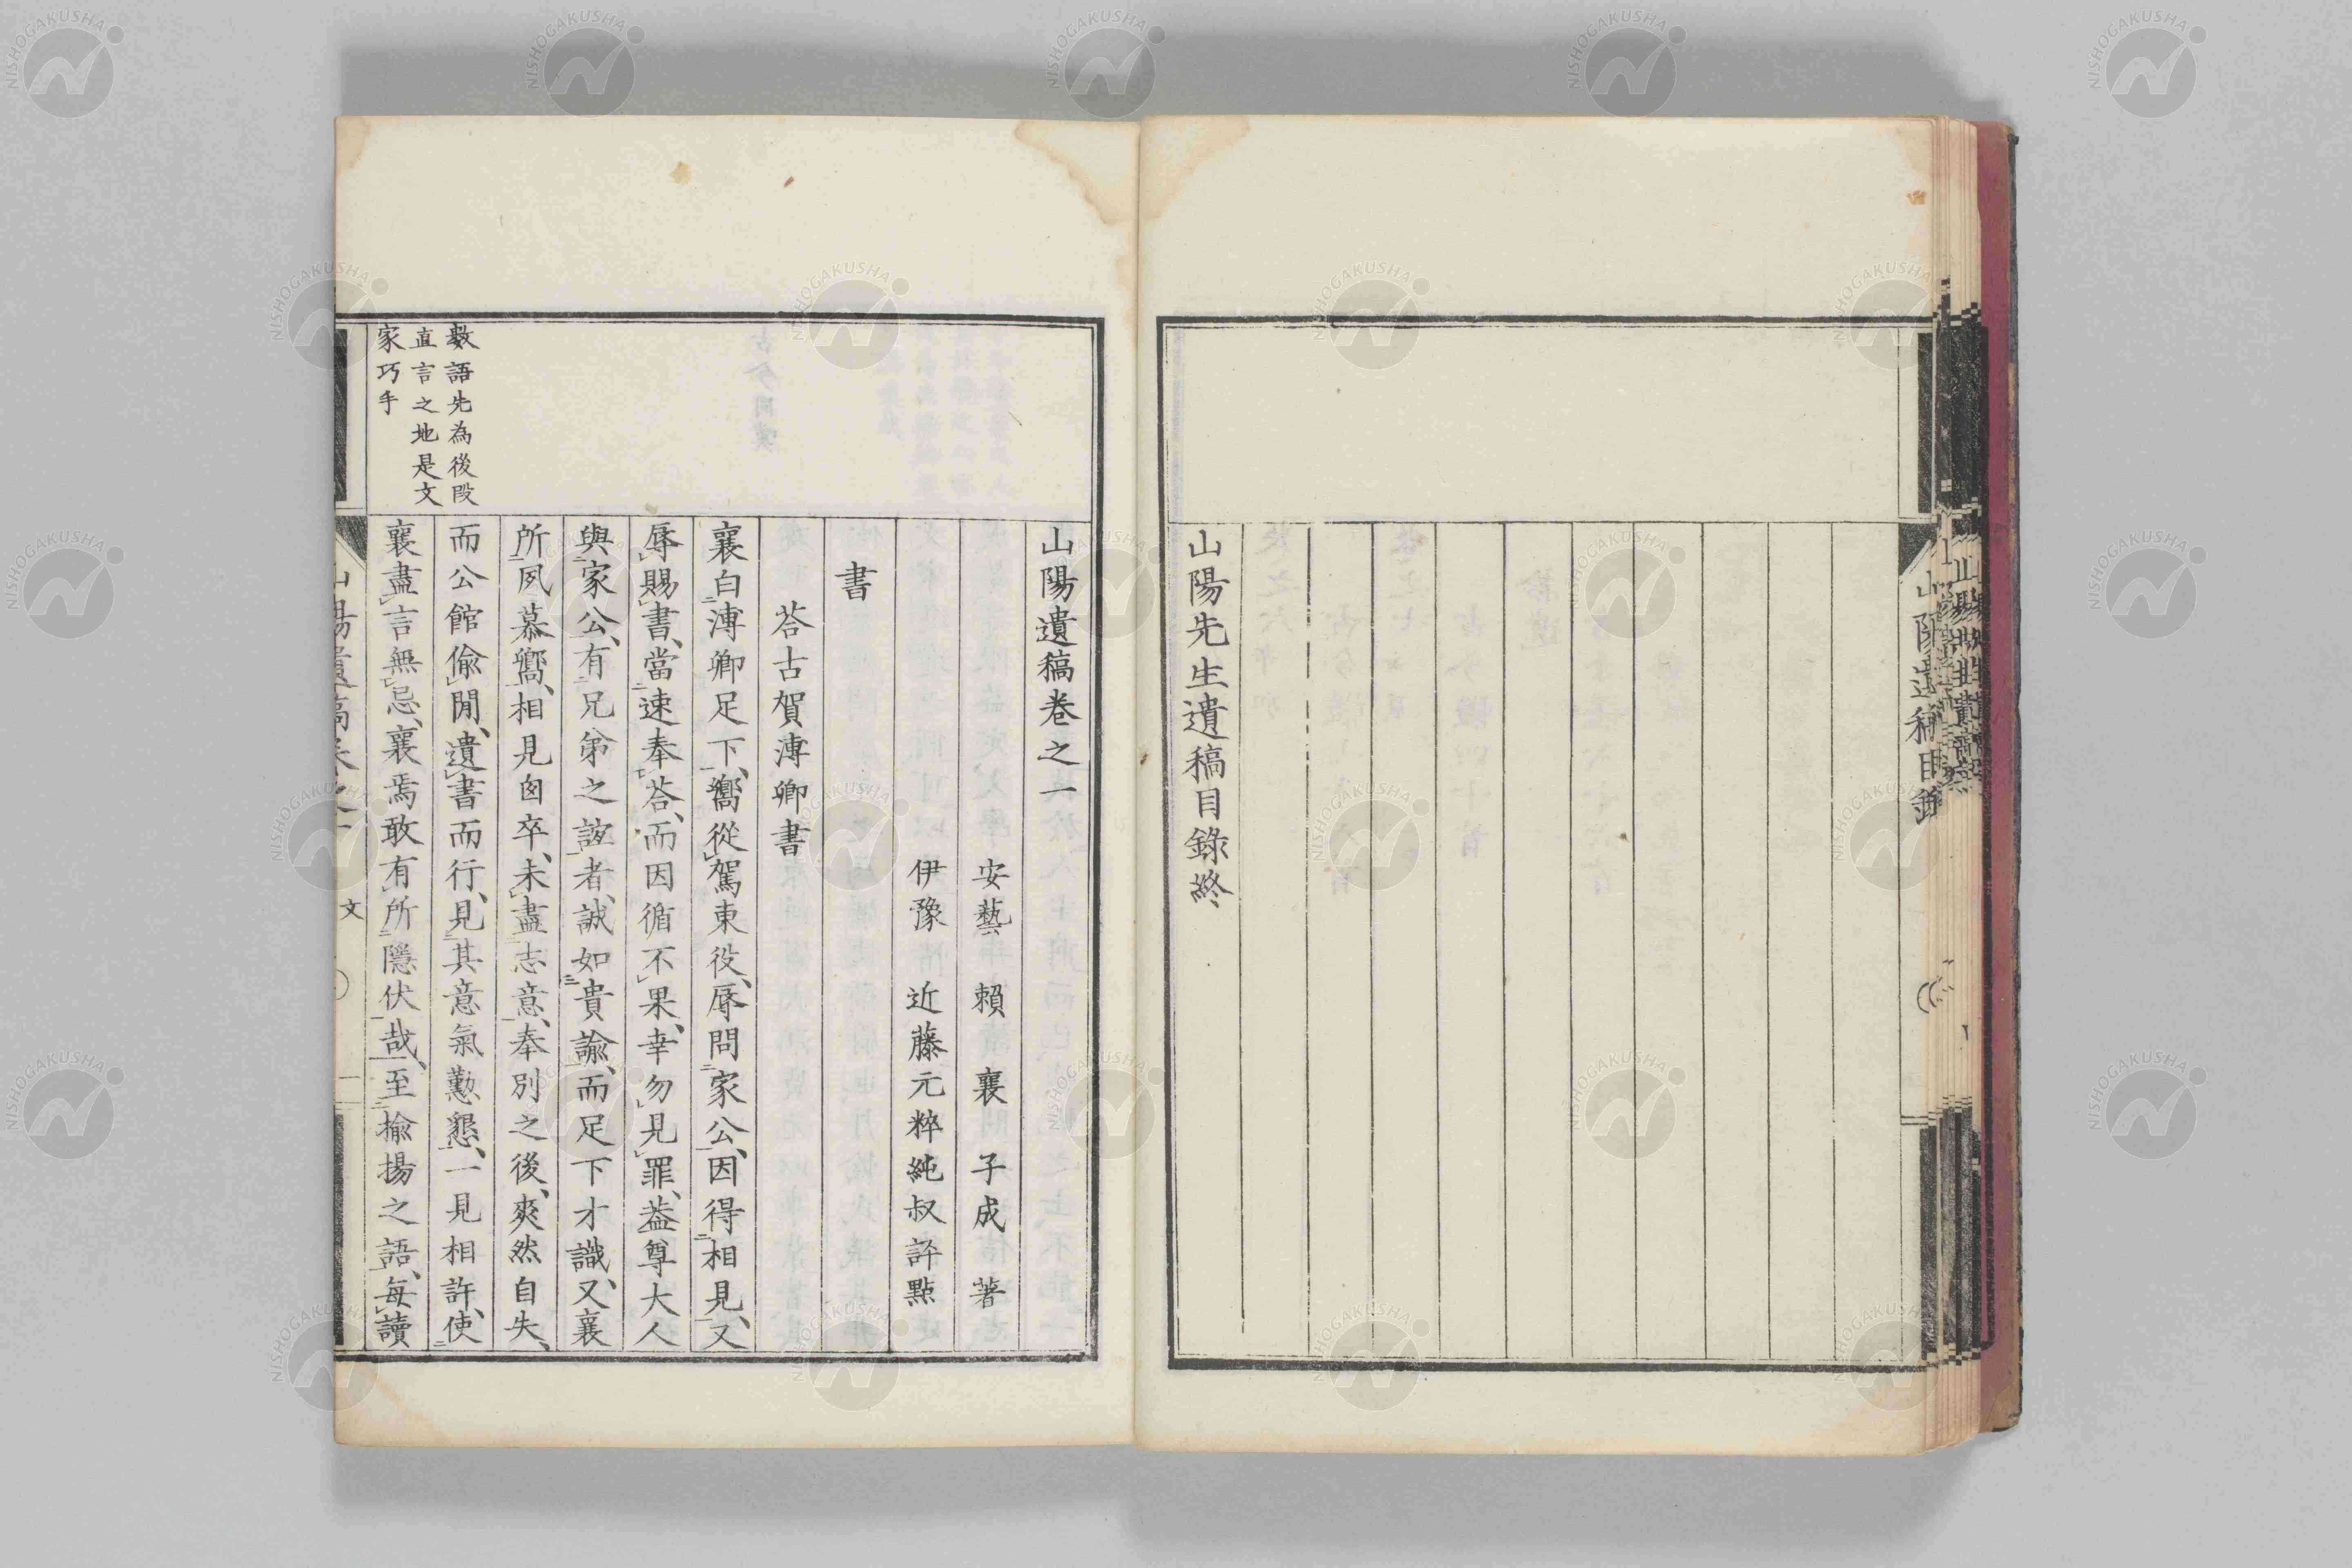 山陽遺稿目錄
山陽先生遺稿目錄終
山陽遺稿卷之一
安藝 賴 襄 子成 著
伊豫 近藤元粹純叔評點
書
荅古賀溥卿書
襄白溥卿足下、嚮從駕東役、辱問家公、因得相見、又
辱賜書、當速奉荅、而因循不果、幸勿見罪、葢尊大人
與家公、有兄弟之誼者、誠如貴諭、而足下才識、又襄
所夙慕嚮、相見匆卒、未盡志意、奉別之後、爽然自失、
而公館偷閒、遺書而行、見其意氣懃懇、一見相許、使
襄盡言無忌、襄焉敢有所隱伏哉、至揄揚之語、每讀
數語先為後段
直言之地是文
家巧手
山陽遺稿卷之一
文
一
NISHOGAKUSHA